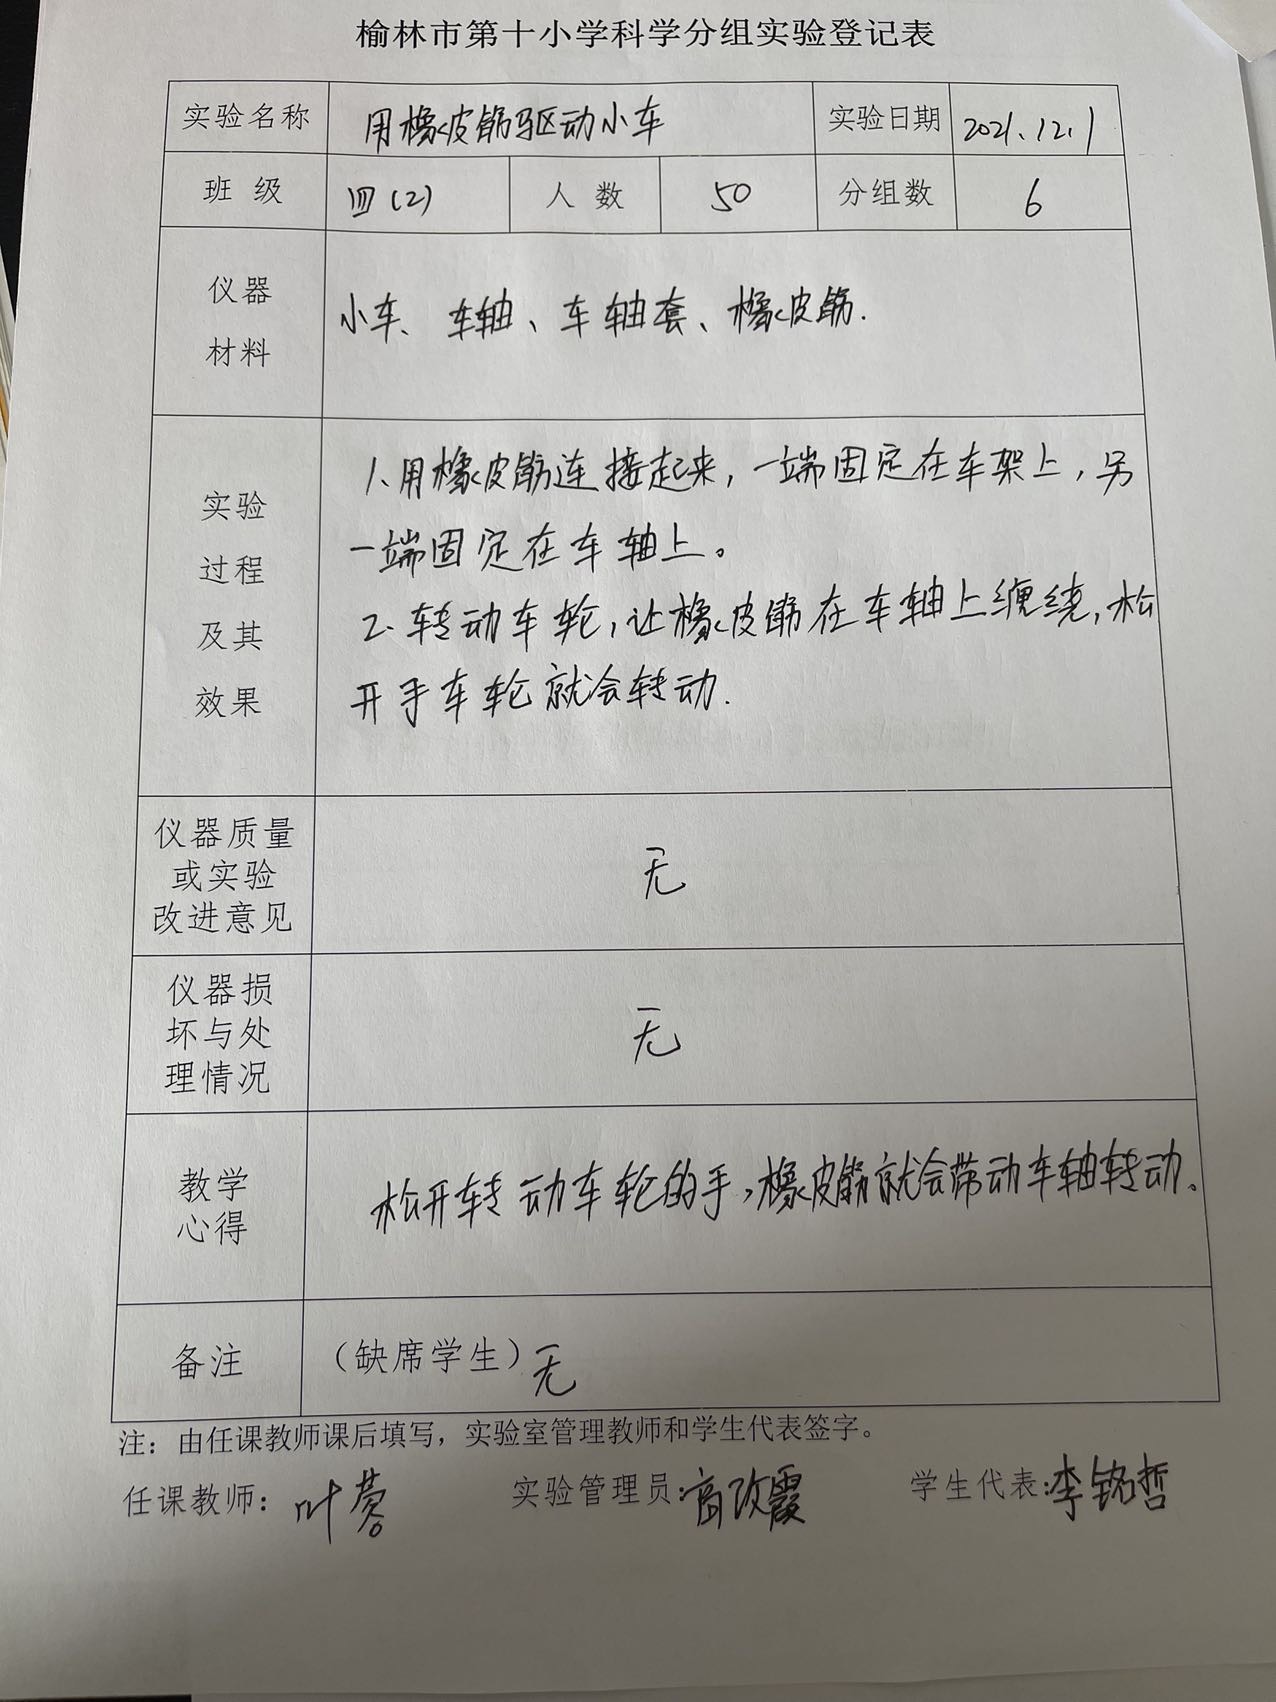 榆林市第十小学科学分组实验登记表
实验名称 用橡皮筋驱动小车 实验日期 2021.12.1
班 级 四(2) 人 数 50 分组数 6
仪器
材料
小车、车轴、车轴套、橡皮筋.
实验
过程
及其
效果
1、用橡皮筋连接起来,一端固定在车架上,另
一端固定在车轴上。
2.转动车轮,让橡皮筋在车轴上缠绕,松
开手车轮就会转动.
仪器质量
或实验
改进意见
无
仪器损
坏与处
理情况
无
教学
心得
松开转动车轮的手,橡皮筋就会带动车轴转动。
备注 (缺席学生)无
注：由任课教师课后填写，实验室管理教师和学生代表签字。
任课教师：叶蓉 实验管理员:高改霞 学生代表:李铭哲